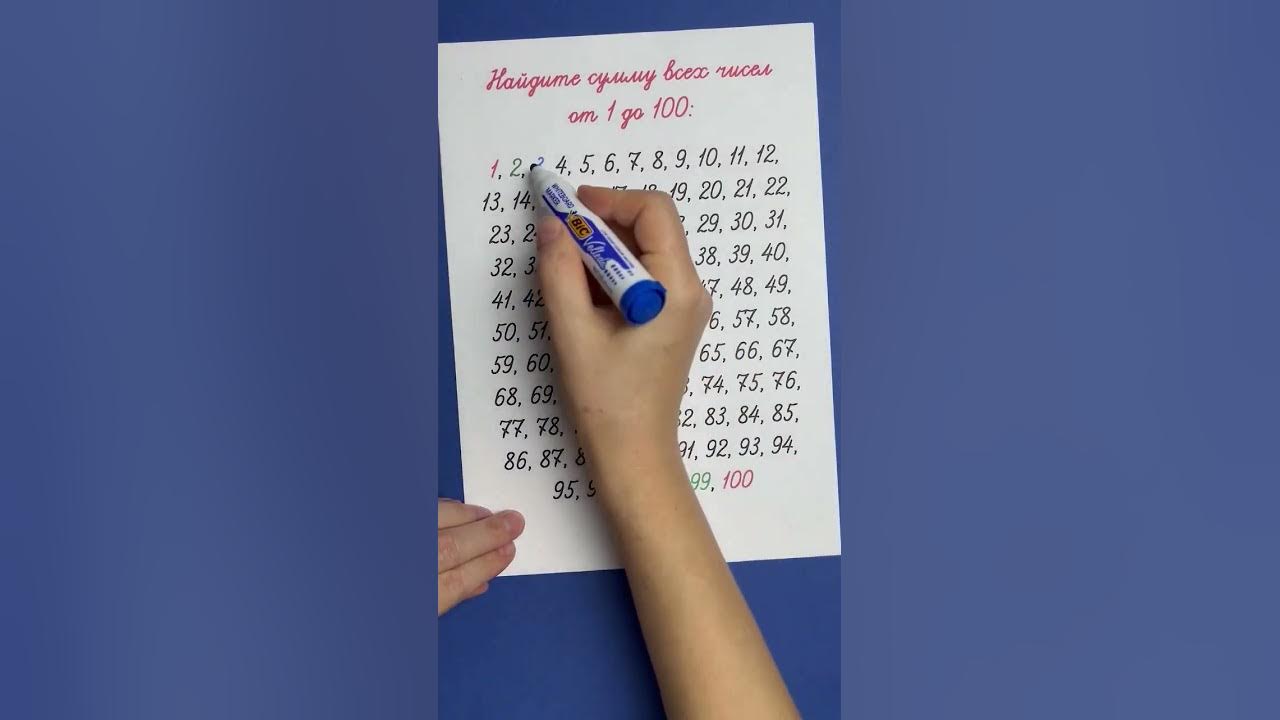 Найдите сумму всех чисел
от 1 до 100:
1, 2, 3, 4, 5, 6, 7, 8, 9, 10, 11, 12,
13, 14, 17, 18, 19, 20, 21, 22,
23, 24 29, 30, 31,
32, 38, 39, 40,
41, 42 47, 48, 49,
50, 51, 57, 58,
59, 60, 65, 66, 67,
68, 69, 74, 75, 76,
77, 78, 82, 83, 84, 85,
86, 87, 91, 92, 93, 94,
95, 99, 100
WHITEBOARD
MARKER
BIC
Velleda